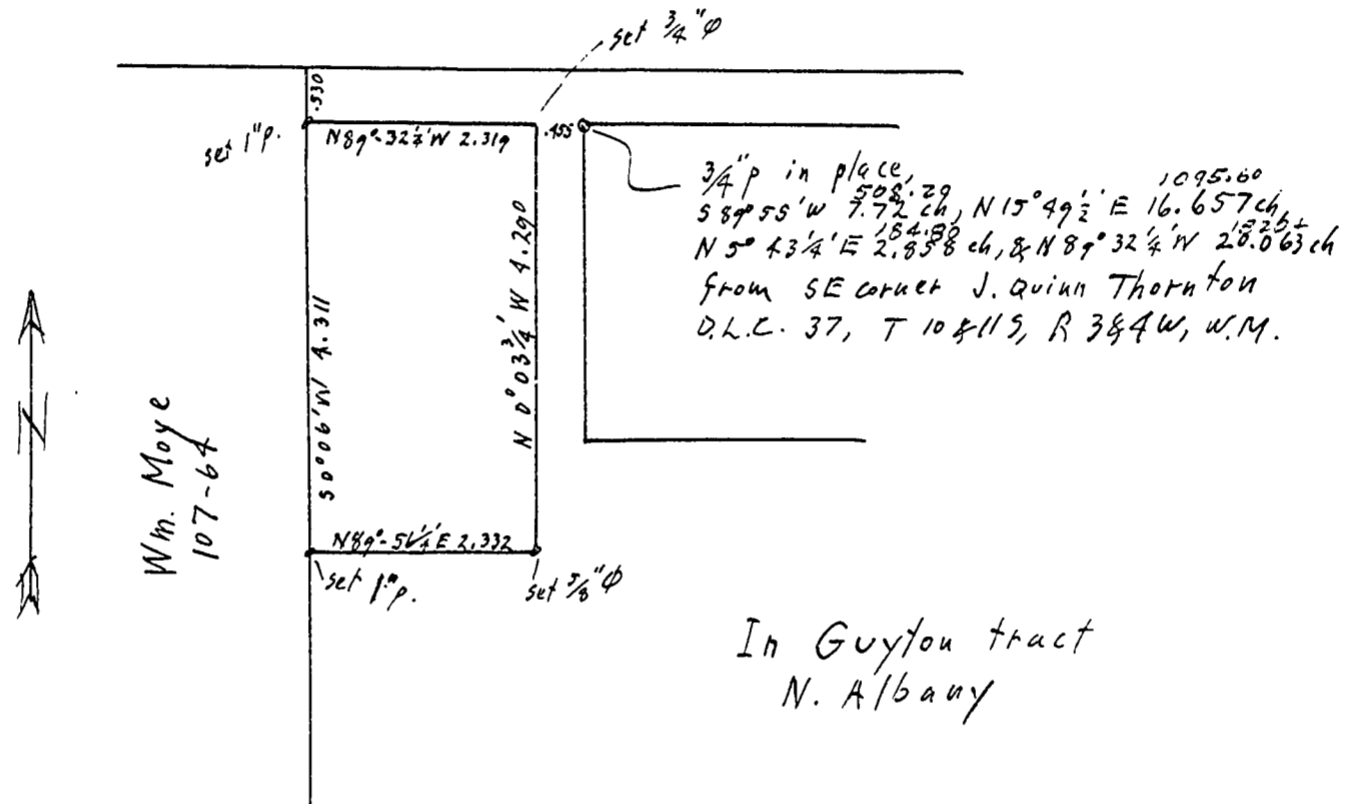 set 3/4" φ
.530
set 1" p.
N89°-32 1/4' W 2.319
.455
3/4" p in place,
509.29 1095.60
S 89° 55' W 7.72 ch, N 15° 49 1/2' E 16.657 ch,
N 5° 43 1/4' E 2.858 ch, & N 89° 32 1/4' W 20.063 ch
from SE corner J. Quinn Thornton
D.L.C. 37, T 10 & 11 S, R 3 & 4 W, W.M.
S 0° 06' W 4.311
N 0° 03 3/4' W 4.290
N
Wm. Moye
107-64
N89°-51 1/4' E 2.332
set 1" p.
set 5/8" φ
In Guyton tract
N. Albany